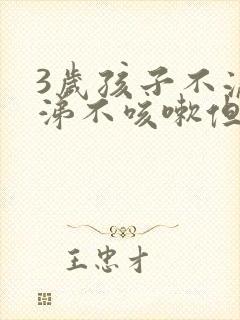 3歲孩子不流
涕不咳嗽但
王忠才